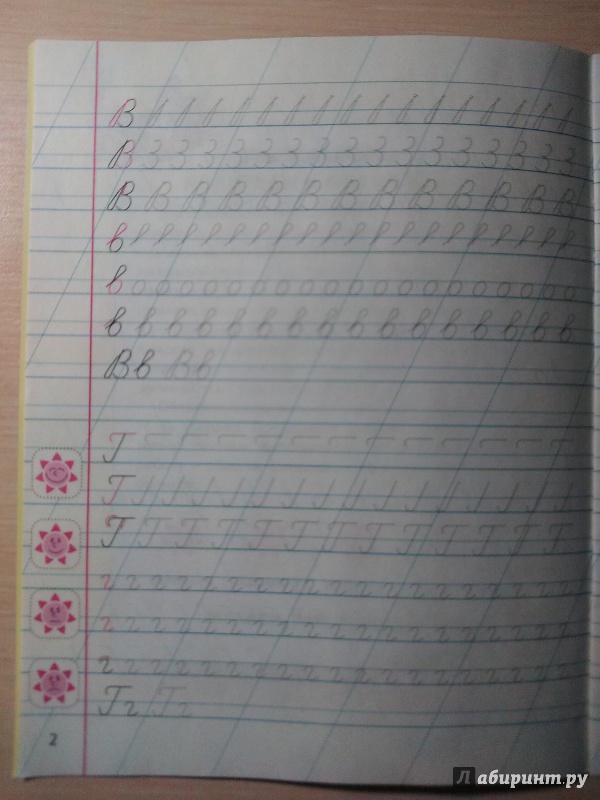 В
В З З З З З З З З З З З З З З З З
В В В В В В В В В В В В В
в
в о о о о о о о о о о о о о о о о о о о
в в в в в в в в в в в в в в в в
Вв Вв
Г
Г
Г Г Г Г Г Г Г Г Г Г Г Г Г
г г г г г г г г г г г г г г г г г г г
г г г г г г г г г г г г г г г г г г г
г г г г г г г г г г г г г г г г г г г
Гг Гг
2
Лабиринт.ру